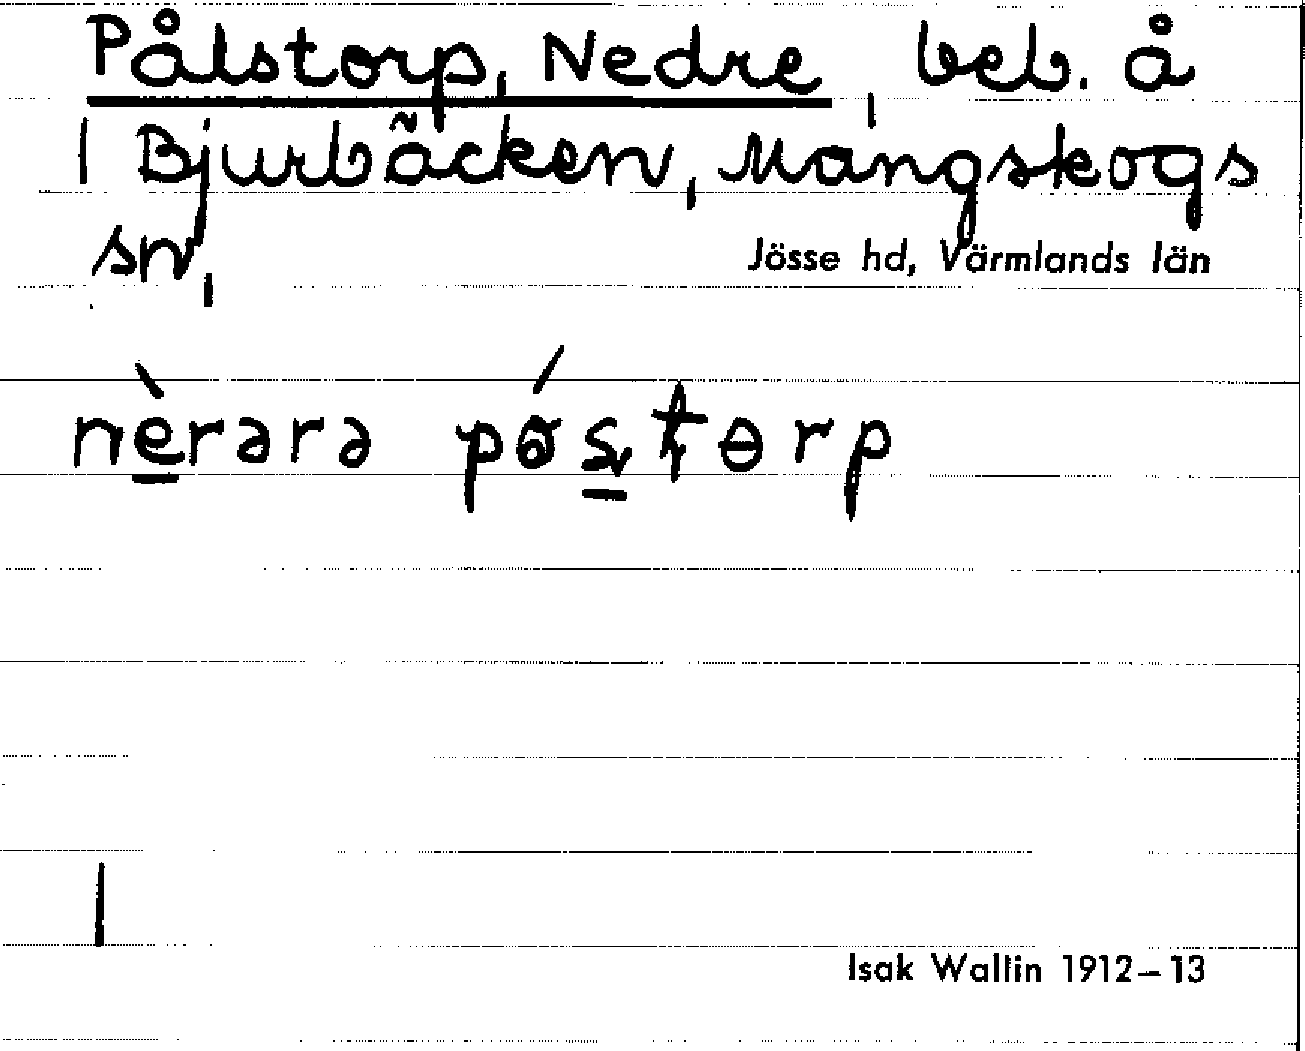 Pålstorp, Nedre, beb. å
1 Bjurbäcken, Mangskogs
sn,
Jösse hd, Värmlands län
nèrara póstorp
1
Isak Wallin 1912–13